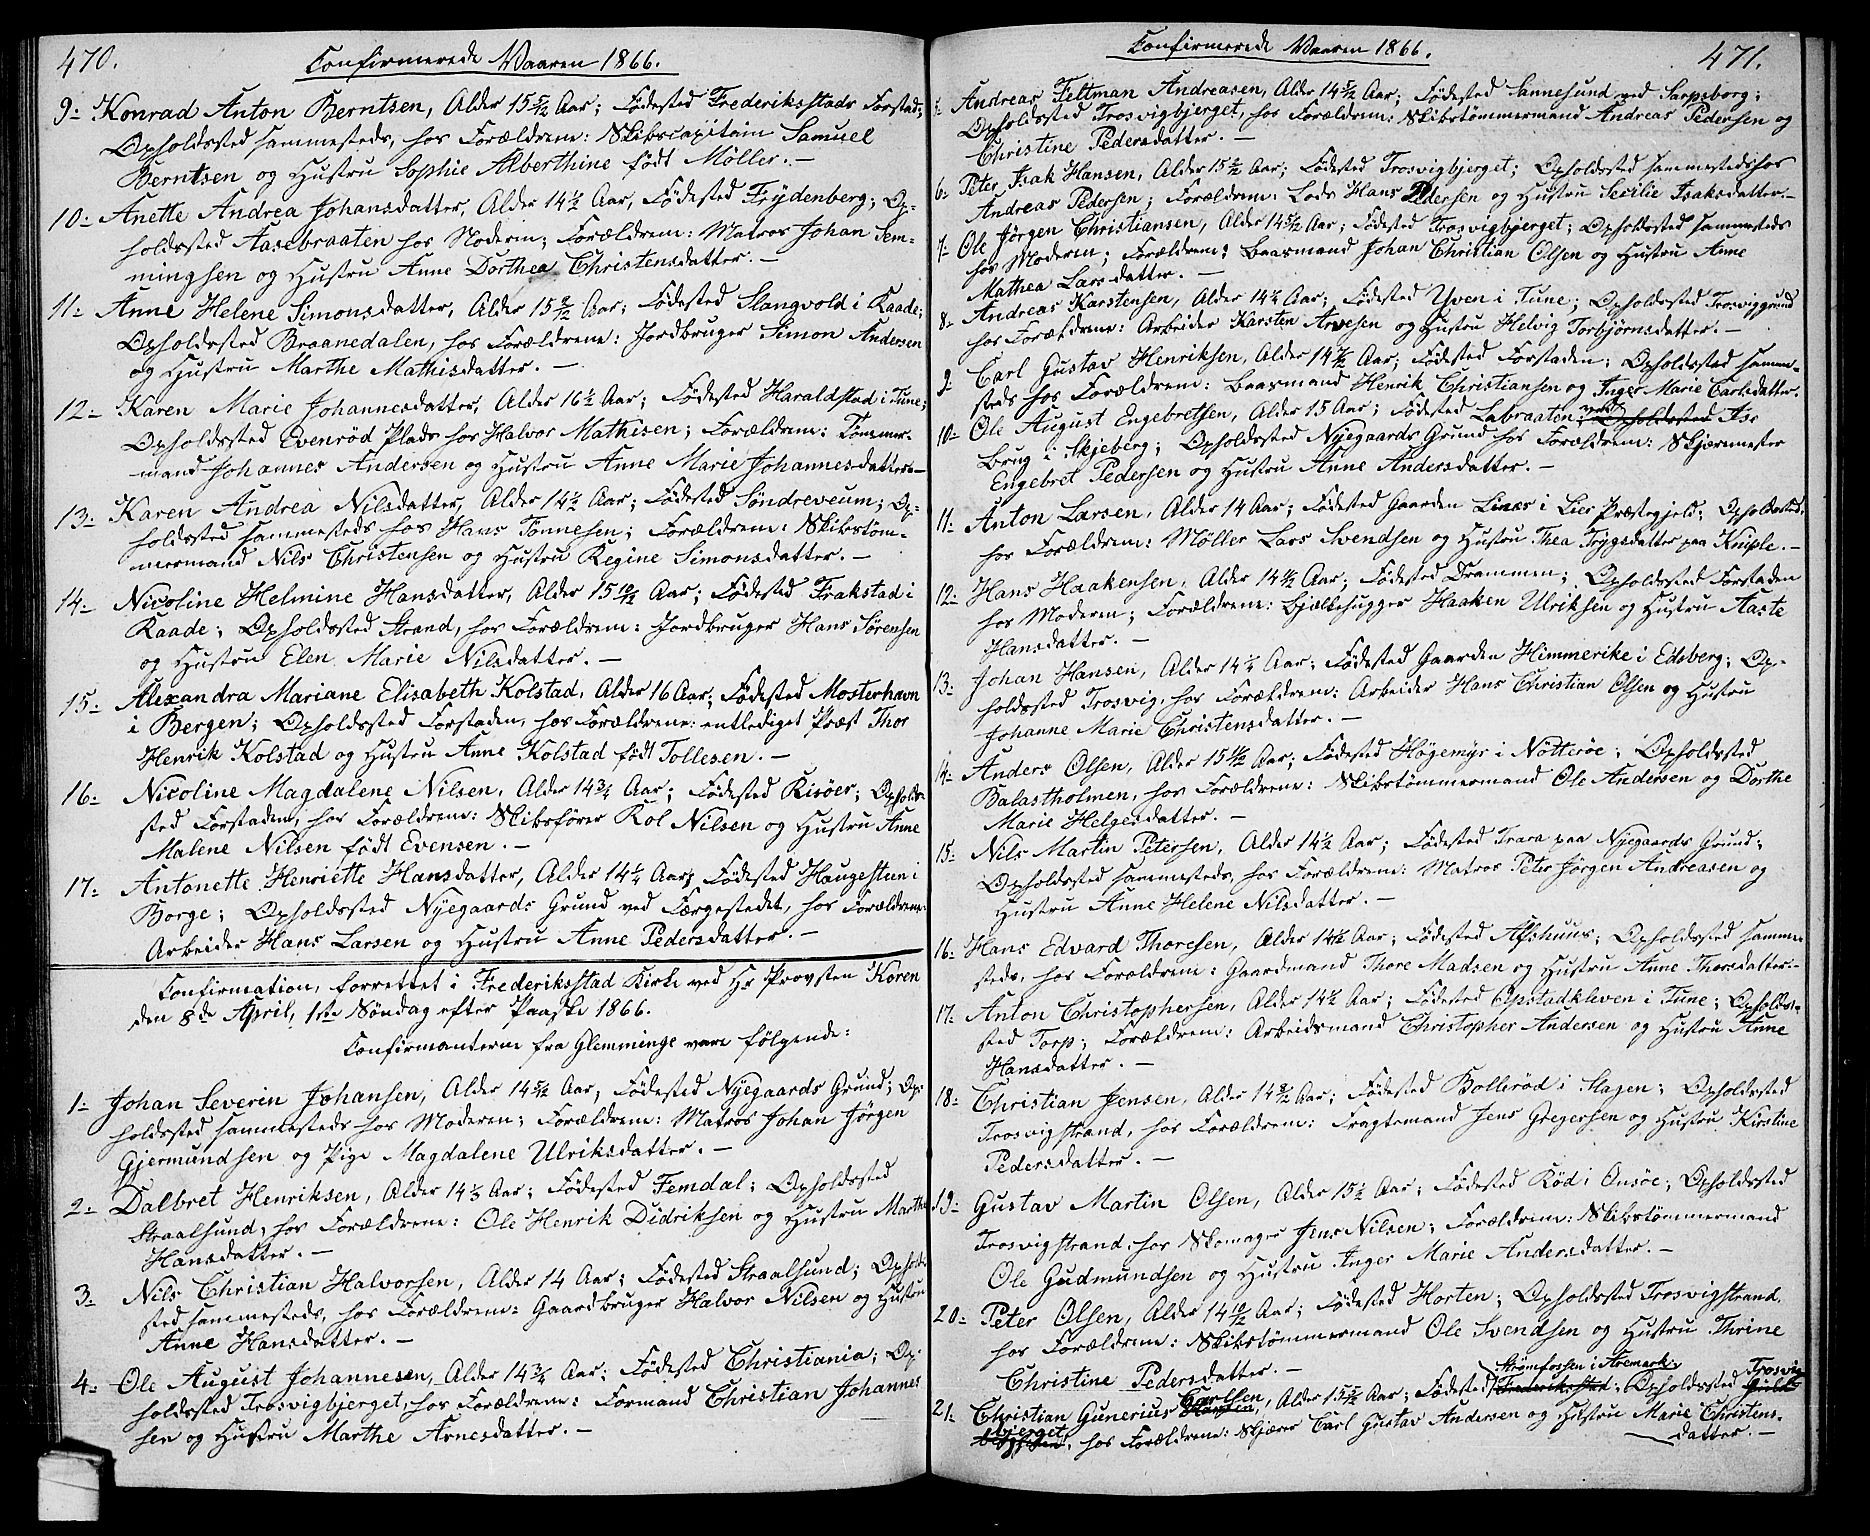 470.
Confirmerede Vaaren 1866.
9: Konrad Anton Berntsen, Alder 15 5/12 Aar; Fødested Frederiksstads Forstad;
Opholdssted sammesteds, hos Forældrene: Skibscapitain Samuel
Berntsen og Hustru Sophie Alberthine født Møller. —
10: Anette Andrea Johansdatter, Alder 14 1/2 Aar, Fødested Frydenberg; Op-
holdssted Aasebraaten hos Moderen; Forældrene: Matros Johan Fem-
mingsen og Hustru Anne Dorthea Christensdatter. —
11: Anne Helene Simonsdatter, Alder 15 8/12 Aar; Fødested Slangsvold i Raade;
Opholdssted Braanedalen, hos Forældrene: Jordbruger Simon Andersen
og Hustru Marthe Mathisdatter. —
12: Karen Marie Johannesdatter, Alder 16 1/2 Aar; Fødested Haraldstad i Tune;
Opholdssted Evenrød Plads hos Halvor Mathisen; Forældrene: Tømmer-
mand Johannes Andersen og Hustru Anne Marie Johannesdatter. —
13: Karen Andrea Nilsdatter, Alder 14 1/2 Aar; Fødested Søndreveum; Op-
holdssted sammesteds hos Hans Tønnesen; Forældrene: Skibstøm-
mermand Nils Christensen og Hustru Regine Simonsdatter. —
14: Nicoline Helmine Hansdatter, Alder 15 10/12 Aar; Fødested Frakstad i
Raade; Opholdssted Strand, hos Forældrene: Jordbruger Hans Sørensen
og Hustru Elen Marie Nilsdatter. —
15: Alexandra Mariane Elisabeth Kolstad, Alder 16 Aar; Fødested Mosterhavn
i Bergen; Opholdssted Forstaden, hos Forældrene: entlediget Præst Thor
Henrik Kolstad og Hustru Anne Kolstad født Tollesen. —
16: Nicoline Magdalene Nilsen, Alder 14 3/4 Aar; Fødested Risöer; Opholds-
sted Forstaden, hos Forældrene: Skibsfører Rol Nilsen og Hustru Anne
Malene Nilsen født Evensen. —
17: Antonette Henriette Hansdatter, Alder 14 1/4 Aar; Fødested Haugestuen i
Borge; Opholdssted Nyegaards Grund ved Færgestedet, hos Forældrene:
Arbeider Hans Larsen og Hustru Anne Pedersdatter. —
Confirmation, forrettet i Frederiksstad Kirke ved Hr Provsten Koren
den 8de April, 1ste Søndag efter Paaske 1866.
Confirmanterne fra Glemminge vare følgende:
1: Johan Severin Johansen, Alder 14 5/12 Aar; Fødested Nyegaards Grund; Op-
holdssted sammesteds hos Moderen; Forældrene: Matros Johan Jörgen
Gjermundsen og Pige Magdalene Ulriksdatter. —
2: Dalbret Henriksen, Alder 14 1/3 Aar; Fødested Femdal; Opholdssted
Straalsund, hos Forældrene: Ole Henrik Didriksen og Hustru Marthe
Hansdatter. —
3: Nils Christian Halvorsen, Alder 14 Aar; Fødested Straalsund; Ophold-
sted sammesteds, hos Forældrene: Gaardbruger Halvor Nilsen og Hustru
Anne Hansdatter. —
4: Ole August Johannesen, Alder 14 3/4 Aar; Fødested Christiania; Op-
holdssted Trosvigbjerget, hos Forældrene: Formand Christian Johannes
sen og Hustru Marthe Arnesdatter. —
Confirmerede Vaaren 1866.
471.
5: Andreas Feltman Andreasen, Alder 14 5/12 Aar; Fødested Sannesund ved Sarpsborg;
Opholdssted Trosvigbjerget, hos Forældrene: Skibstømmermand Andreas Pedersen og
Christine Pedersdatter. —
6: Peter Isak Hansen, Alder 15 5/12 Aar; Fødested Trosvigbjerget; Opholdssted sammesteds hos
Andreas Pedersen; Forældrene: Lods Hans Pedersen og Hustru Secilie Isaksdatter. —
7: Ole Jörgen Christiansen, Alder 14 5/12 Aar; Fødested Trosvigbjerget; Opholdssted sammesteds
hos Moderen; Forældrene: Baasmand Johan Christian Olsen og Hustru Anne
Mathea Larsdatter. —
8: Andreas Karstensen, Alder 14 1/4 Aar; Fødested Yven i Tune; Opholdssted Trosviggrund
hos Forældrene: Arbeider Karsten Arvesen og Hustru Helvig Torbjørnsdatter. —
9: Carl Gustav Henriksen, Alder 14 7/12 Aar; Fødested Forstaden; Opholdssted samme-
steds hos Forældrene: Baasmand Henrik Christiansen og Inger Marie Carlsdatter.
10: Ole August Engebretsen, Alder 15 Aar; Fødested Labraaten ved Opholdssted Ise
Brug i Skjeberg; Opholdssted Nyegaards Grund hos Forældrene: Skjærmester
Engebret Pedersen og Hustru Anne Andersdatter. —
11: Anton Larsen, Alder 14 Aar; Fødested Gaarden Linæs i Lier Præstegjeld; Opholdssted
hos Forældrene: Møller Lars Svendsen og Hustru Thea Trygsdatter paa Kniple. —
12: Hans Haakensen, Alder 14 1/2 Aar; Fødested Drammen; Opholdssted Forstaden
hos Moderen; Forældrene: Bjælkehugger Haaken Ulriksen og Hustru Aaste
Hansdatter. —
13: Johan Hansen, Alder 14 1/4 Aar; Fødested Gaarden Himmerike i Edsberg; Op-
holdssted Trosvig, hos Forældrene: Arbeider Hans Christian Olsen og Hustru
Johanne Marie Christensdatter. —
14: Anders Olsen, Alder 15 1/2 Aar; Fødested Högemyr i Nötteröe; Opholdssted
Balastholmen, hos Forældrene: Skibstømmermand Ole Andersen og Dorthe
Marie Helgesdatter. —
15: Nils Martin Petersen, Alder 14 1/2 Aar; Fødested Trara paa Nyegaards Grund;
Opholdssted sammesteds, hos Forældrene: Matros Peter Jörgen Andreasen og
Hustru Anne Helene Nilsdatter. —
16: Hans Edvard Thoresen, Alder 14 1/2 Aar; Fødested Afshuus; Opholdssted samme-
steds, hos Forældrene: Gaardmand Thore Madsen og Hustru Anne Thorsdatter. —
17: Anton Christophersen, Alder 14 1/2 Aar; Fødested Opstadkleven i Tune; Opholds-
sted Torp; Forældrene: Arbeidsmand Christopher Andersen og Hustru Anne
Hansdatter. —
18: Christian Jensen, Alder 14 8/12 Aar; Fødested Bollerød i Slagen; Opholdssted
Trosvigstrand, hos Forældrene: Fragtemand Jens Gregersen og Hustru Kirstine
Pedersdatter. —
19: Gustav Martin Olsen, Alder 15 1/2 Aar; Fødested Rød i Onsöe; Opholdssted
Trosvigstrand, hos Skomager Jens Nilsen; Forældrene: Skibstømmermand
Ole Gudmundsen og Hustru Inger Marie Andersdatter. —
20: Peter Olsen, Alder 14 10/12 Aar; Fødested Horten; Opholdssted Trosvigstrand
hos Forældrene: Skibstømmermand Ole Svendsen og Hustru Thrine
Christine Pedersdatter. —
21: Christian Gunerius Carlsen, Alder 15 5/12 Aar; Fødested Strømsfossen i Aremark; Frederiksstad; Opholdssted Trosvig
bjerget, hos Forældrene: Skjærer Carl Gustav Andersen og Hustru Marie Christens-
datter. —